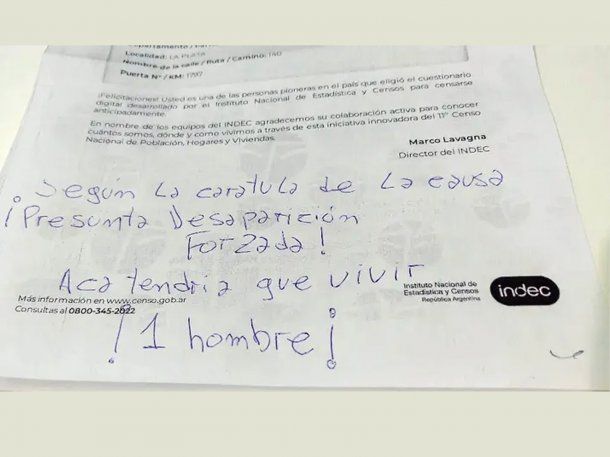 Localidad: LA PLATA
Nombre de la calle / Ruta / Camino: 140
Puerta N° / KM:
¡Felicitaciones! Usted es una de las personas pioneras en el país que eligió el cuestionario
digital desarrollado por el Instituto Nacional de Estadística y Censos para censarse
anticipadamente.
En nombre de los equipos del INDEC agradecemos su colaboración activa para conocer
cuántos somos, dónde y como vivimos a través de esta iniciativa innovadora del 11° Censo
Nacional de Población, Hogares y Viviendas.
Marco Lavagna
Director del INDEC
Según La caratula de La causa
¡Presunta Desaparición
Forzada!
Aca tendria que vivir
¡1 hombre!
Más información en www.censo.gob.ar
Consultas al 0800-345-2022
Instituto Nacional de
Estadística y Censos
República Argentina
indec